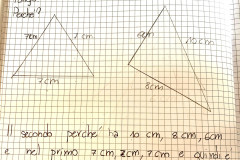 Perché?
7cm 7 cm
7 cm
6cm
10 cm
8cm
Il secondo perché ha 10 cm, 8 cm, 6cm
e nel primo 7 cm, 7 cm e quindi e